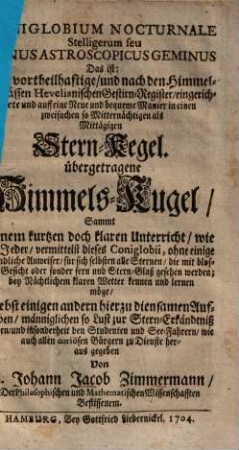 NIGLOBIUM NOCTURNALE
Stelligerum seu
NUS ASTROSCOPICUS GEMINUS
Das ist:
vortheilhafftige/und nach den Himmel-
ssten Hevelianischen Gestirn-Register/eingerich-
ete und auff eine Neue und bequeme Manier in einen
zweifachen so Mitternächtigen als
Mittägigen
Stern-Kegel.
übergetragene
Himmels-Kugel/
Sammt
nem kurtzen doch klaren Unterricht/wie
Jeder/vermittelst dieses Coniglobii, ohne einige
ndliche Anweiser/für sich selbsten alle Sternen/die mit blos-
Gesicht oder sonder fern und Stern-Glaß gesehen werden;
bey Nächtlichem klaren Wetter kennen und lernen
möge/
ebst einigen andern hierzu diensamen Auf-
ben/männiglichen so Lust zur Stern-Erkändtniß
en/und insonderheit den Studenten und See-Fahrern/wie
auch allen curiösen Bürgern zu Dienste her-
aus gegeben
Von
. Johann Jacob Zimmermann/
Der Philosophischen und Mathematischen Wissenschafften
Beflissenem.
HAMBURG, Bey Gottfried Liebernickel. 1704.